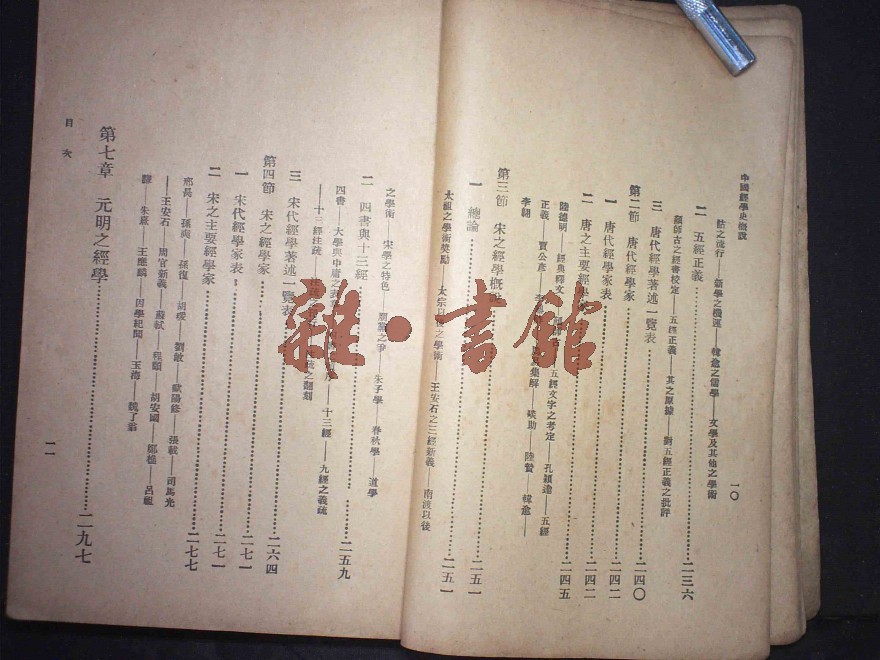 中國經學史概說
一〇
詁之流行——新學之機運——韓愈之儒學——文學及其他之學術
二 五經正義 二三六
顏師古之經書校定——五經正義——其之原據——對五經正義之批評
三 唐代經學著述一覽表 二四〇
第二節 唐代經學家 二四二
一 唐代經學家表 二四二
二 唐之主要經學 二四五
陸德明——經典釋文 五經文字之考定——孔穎達——五經
正義——賈公彥——李 集解——啖助——陸贄——韓愈——
李翱
第三節 宋之經學概 二五一
一 總論 二五一
太祖之學術獎勵——太宗以後之學術——王安石之三經新義——南渡以後
之學術——宋學之特色——朋黨之爭——朱子學——春秋學——道學
二 四書與十三經 二五九
四書——大學與中庸之表 十三經——九經之義疏
——十三經注疏—— 之翻刻
三 宋代經學著述一覽表 二六四
第四節 宋之經學家 二七一
一 宋代經學家表 二七一
二 宋之主要經學家 二七七
邢昺——孫奭——孫復——胡瑗——劉敞——歐陽修——孫觳——司馬光
——王安石——周官新義——蘇軾——程頤——胡安國——鄭樵——呂祖
謙——朱熹——王應麟——困學紀聞——玉海——魏了翁
第七章 元明之經學 二九七
目次
一一
雜·書館